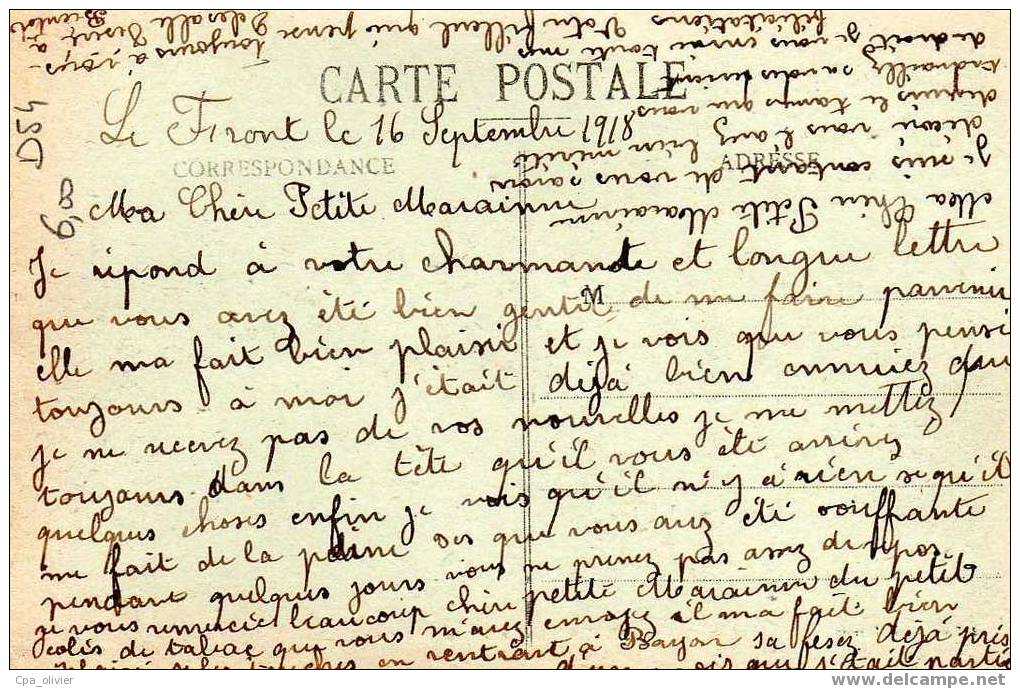 CARTE POSTALE
Le Front le 16 Septembre 1918
CORRESPONDANCE
ADRESSE
D54
Ma Chère Petite Maraine
Je répond à votre charmande et longue lettre
que vous avez été bien gentil de me faire parvenir
M
elle ma fait bien plaisir et je vois que vous pensé
toujours à moi j'était déjà bien ennuiez que
je ne recevez pas de vos nouvelles je me mettez
toujours dans la tête qu'il vous été arrivez
quelques choses enfin je vois qu'il n'y a rien se qu'il
me fait de la peine ses que vous avez été souffrante
pendant quelques jours vous ne prenez pas assez de repos
je vous remercie beaucoup chère petite Maraine du petit
colis de tabac que vous m'avez envoyez il ma fait bien
en rentrant à Bayon sa fesez déjà près
s'était parti
Ma Chère Petite Maraine
Je suis contant de vous savoir
décoré vous l'avez bien mérité
depuis le temps que vous
travaillez sa vous revient
de droit je vous envoie toute mes
félicitations
Votre filleul qui pense
toujours à vous
Delesalle Désiré à
Bientôt
Cpa_olivier
www.delcampe.net